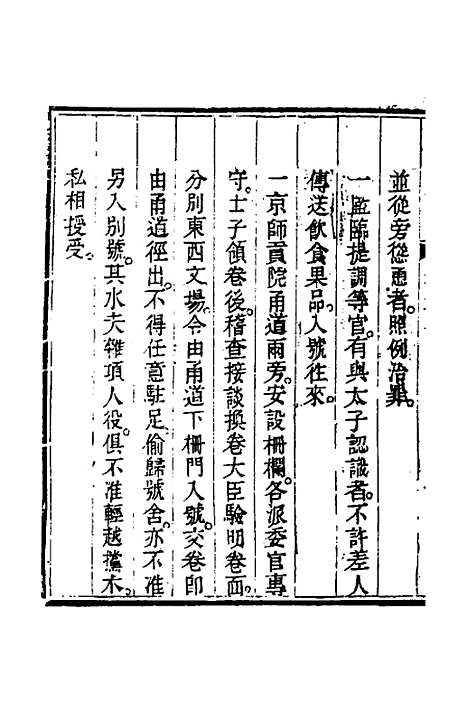 並從旁慫恿者。照例治罪。
一監臨提調等官。有與太子認識者。不許差人
傳送飲食果品。入號往來。
一京師貢院甬道兩旁。安設柵欄。各派委官專
守。士子領卷後。稽查接談換卷大臣驗明卷面。
分別東西文場。令由甬道下柵門入號。交卷即
由甬道徑出。不得任意駐足偷歸號舍。亦不准
另入別號。其水夫雜項人役。俱不准輕越攩木。
私相授受。